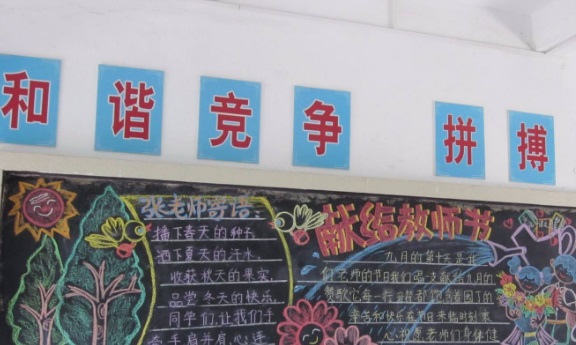 和谐竞争 拼搏
张老师寄语:
播下春天的种子
洒下夏天的汗水,
收获秋天的果实,
品尝冬天的快乐.
同学们,让我们手
牵手肩并肩,心连
献给教师节
九月的第十天是我
们老师的节日我们唱一支献给九月的
赞歌它每一粒音符都饱含着园丁的
辛苦和快乐在节日来临时刻衷
心祝愿老师们身体健